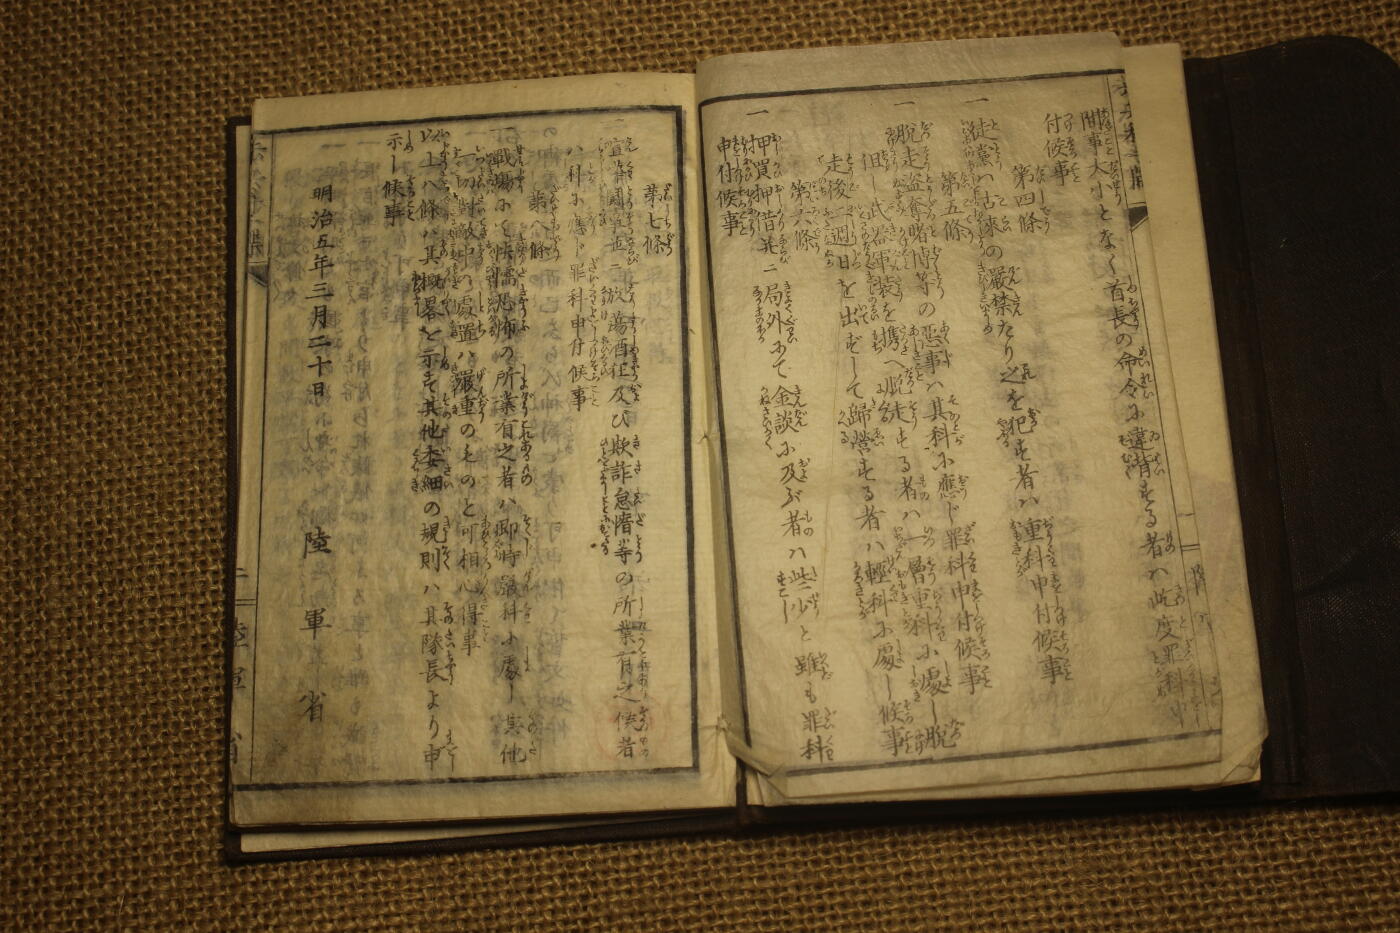 間事大小となく首長の命令ニ違背する者ハ此度罪科申
付候事
第四條
一 徒黨ハ古凍の嚴禁たり之を犯す者ハ重科申付候事
第五條
一 脱走盗奪賭博等の惡事ハ其科ニ應じ罪科申付候事
但し武器軍装を携へ脱走する者ハ一層重科ニ處し脱
走後二週日を出ずして歸營する者ハ輕科ニ處し候事
第六條
一 押買押借並ニ局外にて金談ニ及ぶ者ハ些少と雖も罪科
申付候事
第七條
放蕩酒狂及び欺詐怠惰等の所業有之候者
ハ科ニ應じ罪科申付候事
第八條
一 戰場にて怯懦恐怖の所業有之者ハ即時嚴科ニ處し其他
一切對敵中の處置ハ嚴重のものと可相心得事
以上八條ハ其概畧を示す其他委細の規則ハ其隊長より申
示し候事
明治五年三月二十日 陸軍省